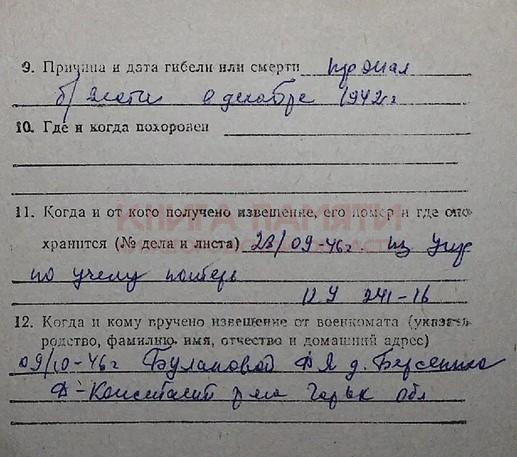 9. Причина и дата гибели или смерти пропал
б/вести в декабре 1942 г
10. Где и когда похоронен
КНИГА ПАМЯТИ
11. Когда и от кого получено извещение, его номер и где оно
хранится (№ дела и листа) 28/09-46г. из Упр
по учету потерь
241-16
12. Когда и кому вручено извещение от военкомата (указать
родство, фамилию, имя, отчество и домашний адрес)
09/10-46г Булановой д.
Д-Константин р-на Горьк обл